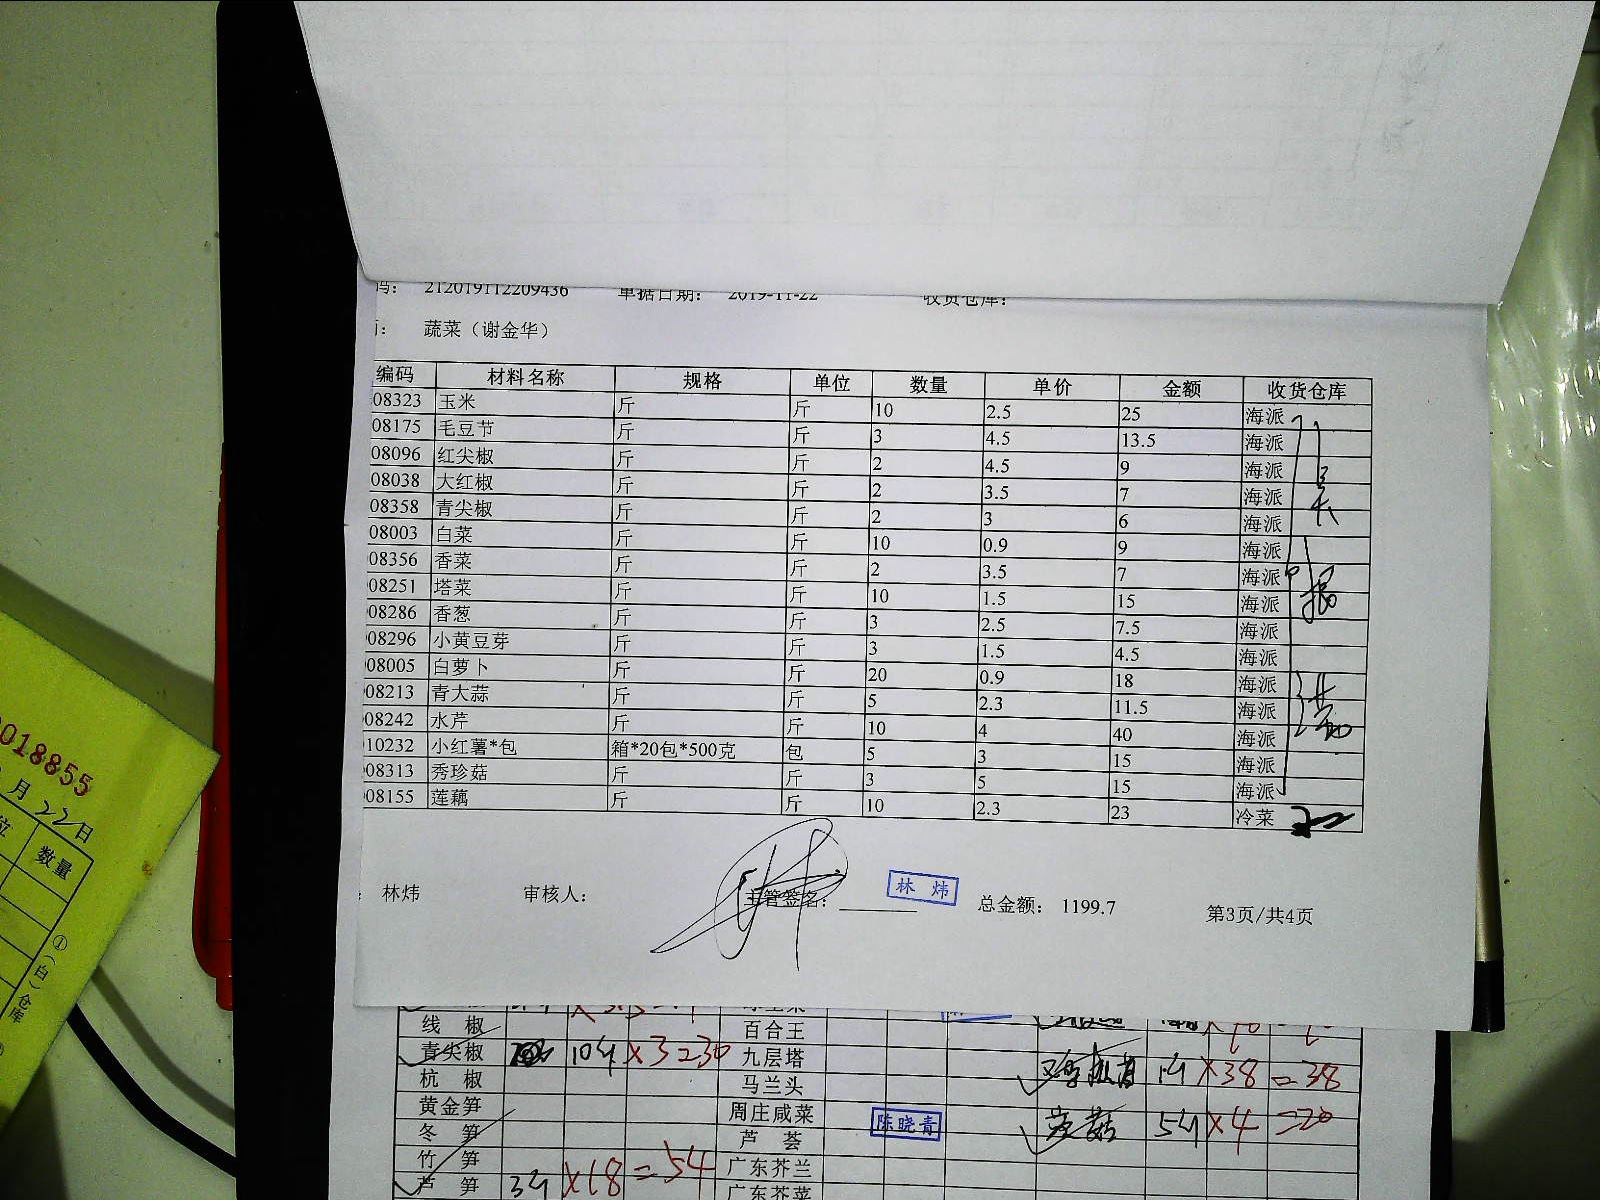 码： 212019112209436 单据日期： 2019-11-22 收货仓库：
蔬菜（谢金华）
编码 材料名称 规格 单位 数量 单价 金额 收货仓库
08323 玉米 斤 斤 10 2.5 25 海派
08175 毛豆节 斤 斤 3 4.5 13.5 海派
08096 红尖椒 斤 斤 2 4.5 9 海派
08038 大红椒 斤 斤 2 3.5 7 海派
08358 青尖椒 斤 斤 2 3 6 海派
08003 白菜 斤 斤 10 0.9 9 海派
08356 香菜 斤 斤 2 3.5 7 海派
08251 塔菜 斤 斤 10 1.5 15 海派
08286 香葱 斤 斤 3 2.5 7.5 海派
08296 小黄豆芽 斤 斤 3 1.5 4.5 海派
08005 白萝卜 斤 斤 20 0.9 18 海派
08213 青大蒜 斤 斤 5 2.3 11.5 海派
08242 水芹 斤 斤 10 4 40 海派
10232 小红薯*包 箱*20包*500克 包 5 3 15 海派
08313 秀珍菇 斤 斤 3 5 15 海派
08155 莲藕 斤 斤 10 2.3 23 冷菜
林炜 审核人： 主管签名： 林炜 总金额： 1199.7 第3页/共4页
线椒 百合王
青尖椒 10斤 ×3=30 九层塔 1斤 ×38=38
杭椒 马兰头
黄金笋 周庄咸菜 陈晓青 茨菇 5斤 ×4=20
冬笋 芦荟
竹笋 广东芥兰
芦笋 3斤 ×18=54 广东芥菜
018855
月22日
位 数量
①(白)仓库